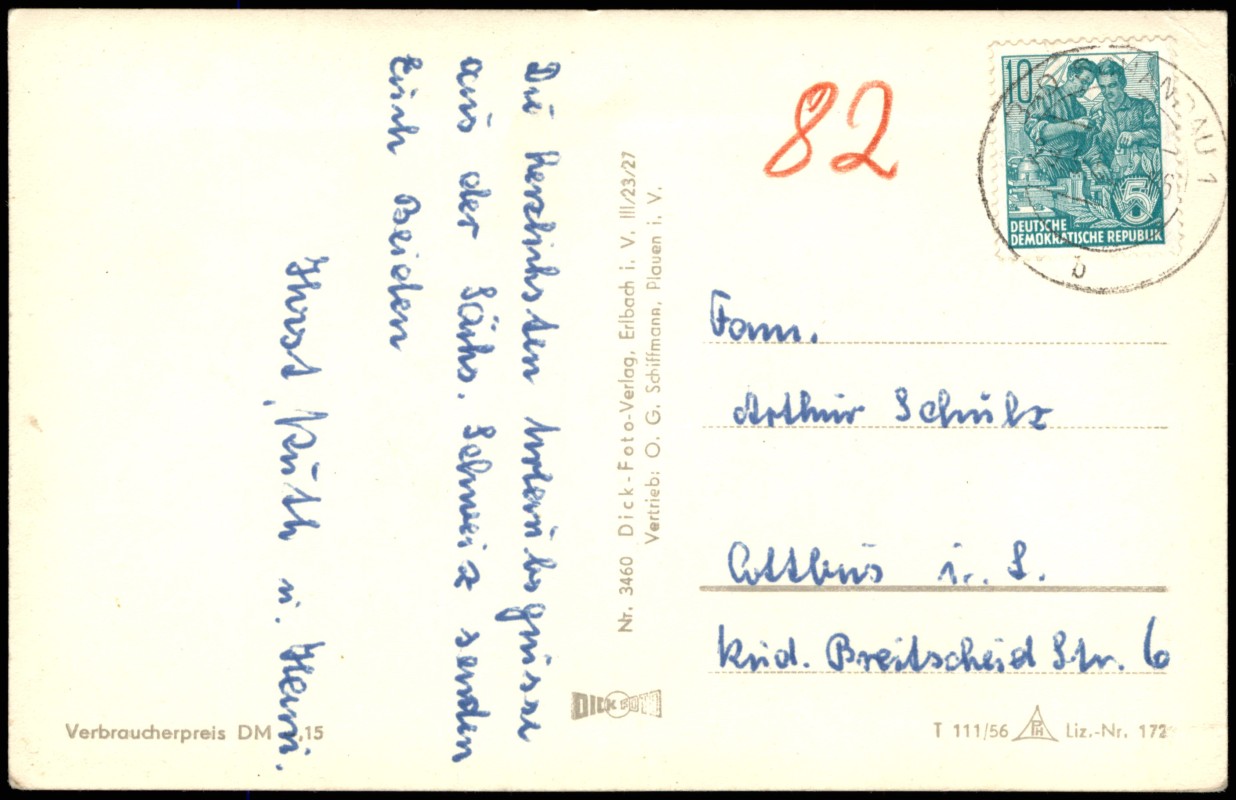 Die herzlichsten Urlaubsgrüsse
aus der Sächs. Schweiz senden
Euch Beiden
Horst, Ruth u. Heini.
Nr. 3460 Dick-Foto-Verlag, Erlbach i. V. III/23/27
Vertrieb: O. G. Schiffmann, Plauen i. V.
DICK FOTO
Verbraucherpreis DM ,15
82
10
5
DEUTSCHE
DEMOKRATISCHE REPUBLIK
ANDAU 1
b
Fam.
Arthur Schulz
Cottbus i. L.
Rud. Breitscheid Str. 6
T 111/56 PH Liz.-Nr. 172